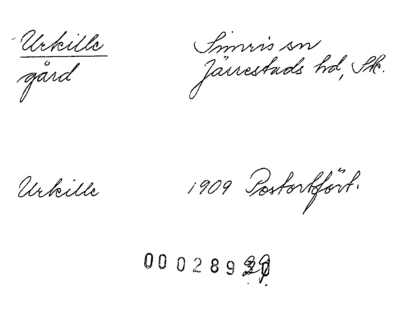 Urkille Simris sn
gård Järrestads hd, Sk.
Urkille 1909 Postortfört.
000289